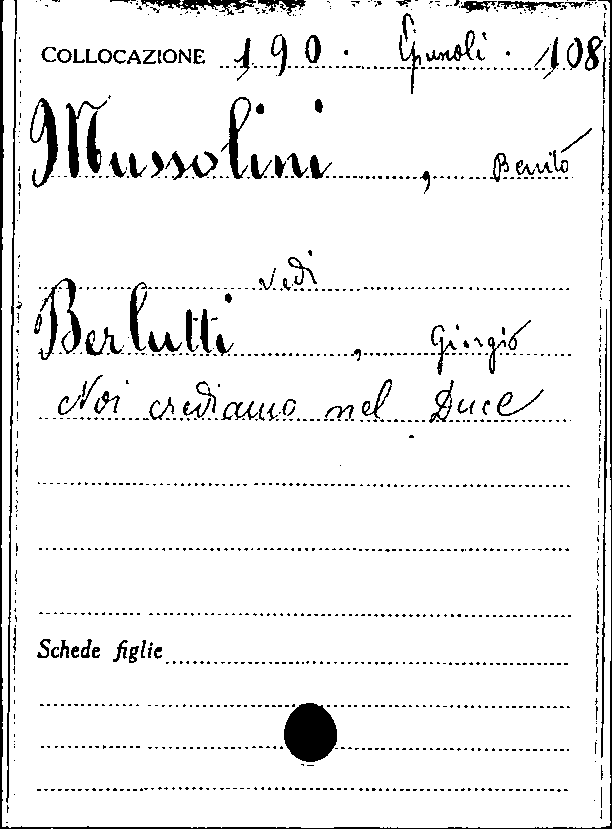 COLLOCAZIONE 190. Epunoli. 108
Mussolini, Benito
vedi
Berlutti, Giorgio
Noi crediamo nel Duce
Schede figlie